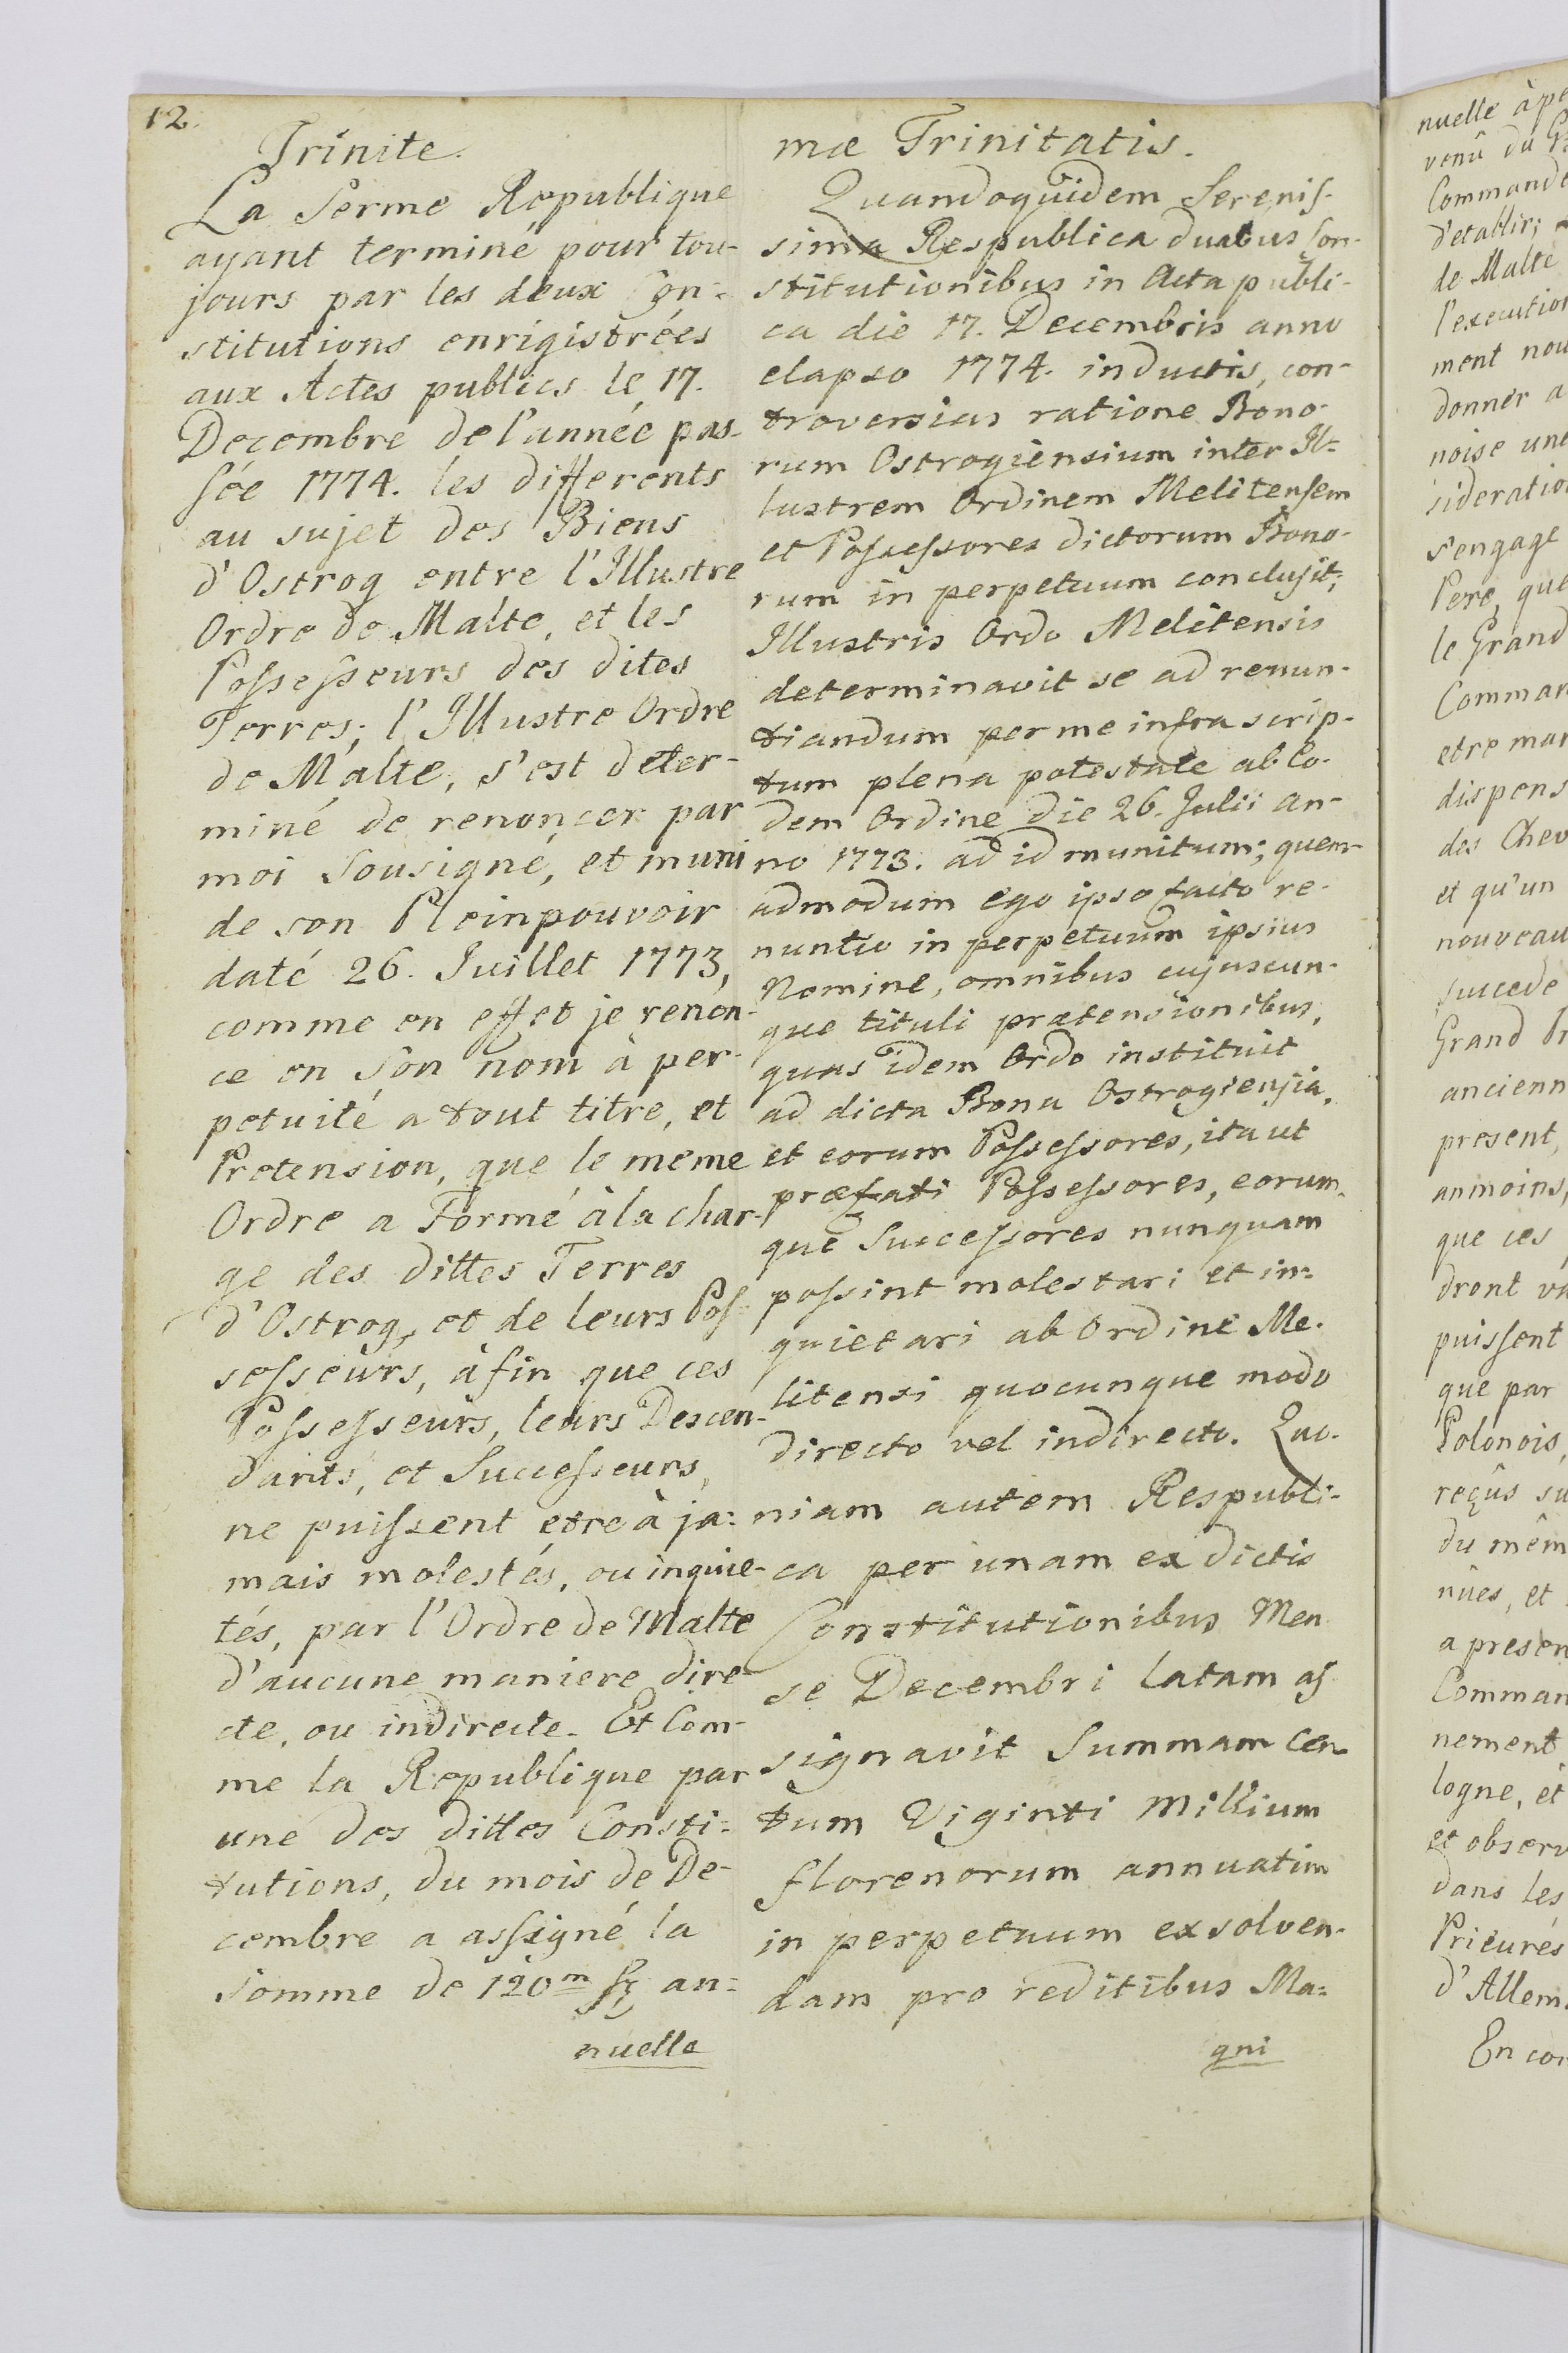 12.
Trinite.
La Serme Republique
ayant terminé pour tou-
jours par les deux Con-
stitutions enrigistrées
aux Actes publics le 17.
Decembre de l'année pas-
sée 1774. les differents
au sujet des Biens
d'Ostrog entre l'Illustre
Ordre de Malte, et les
Possesseurs des dites
Terres; l'Illustre Ordre
de Malte, s'est deter-
miné de renonçer par
moi Sousigné, et muni
de son Pleinpouvoir
daté 26. Juillet 1773,
comme en effet je renon-
ce en Son nom à per-
petuité a tout titre, et
Pretension, que le meme
Ordre a Formé à la char-
ge des dittes Terres
d'Ostrog, et de leurs Pos-
sesseurs, à fin que ces
Possesseurs, leurs Descen-
dants, et Successeurs,
ne puissent etre à ja:
mais molestés, ou inquie-
tés, par l'Ordre de Malte
d'aucune maniere dire-
cte, ou indirecte. Et Com-
me la Republique par
une des dittes Consti:
tutions, du mois de De-
cembre a assigné la
Somme de 120m an:
nuelle
mæ Trinitatis.
Quandoquidem Serenis-
sima Respublica duabus Con-
stitutionibus in Acta publi-
ca die 17. Decembris anno
elapso 1774. inductis, con-
troversias ratione Bono-
rum Ostrogiensium inter Il-
lustrem Ordinem Melitensem
et Possessores dictorum Bono-
rum in perpetuum conclusit;
Illustris Ordo Melitensis
determinavit se ad renun-
tiandum per me infra scrip-
tum plena potestate ab Eo-
dem Ordine die 26. Julii an-
no 1773. ad id munitum; quem-
admodum ego ipso facto re-
nuntio in perpetuum ipsius
Nomine, omnibus cujuscun-
que tituli prætensionibus,
quas idem Ordo instituit
ad dicta Bona Ostrogiensia,
et eorum Possessores, ita ut
præfati Possessores, eorum-
que Successores nunquam
possint molestari et in-
quietari ab Ordine Me-
litensi quocunque modo
directo vel indirecto. Quo-
niam autem Respubli-
ca per unam ex dictis
Constitutionibus Men
se Decembri latam as
signavit Summam Cen-
tum Viginti Millium
florenorum annuatim
in perpetuum exsolven-
dam pro reditibus Ma:
gni
nuelle à pe
venû du G
Commande
d'etablir;
de Malte
l'execution
ment nou
donner a
noise une
sideration
s'engage
Pere, que
le Grand
Comman
etre mar
dispens
des Chev
et qu'un
nouveau
succede
Grand Pr
ancienn
present,
anmoins,
que ces
dront va
puissent
que par
Polonois,
reçûs su
du mêm
nües, et
a presen
Comman
nement
logne, et
et observ
dans les
Prieurés
d'Allem
En con